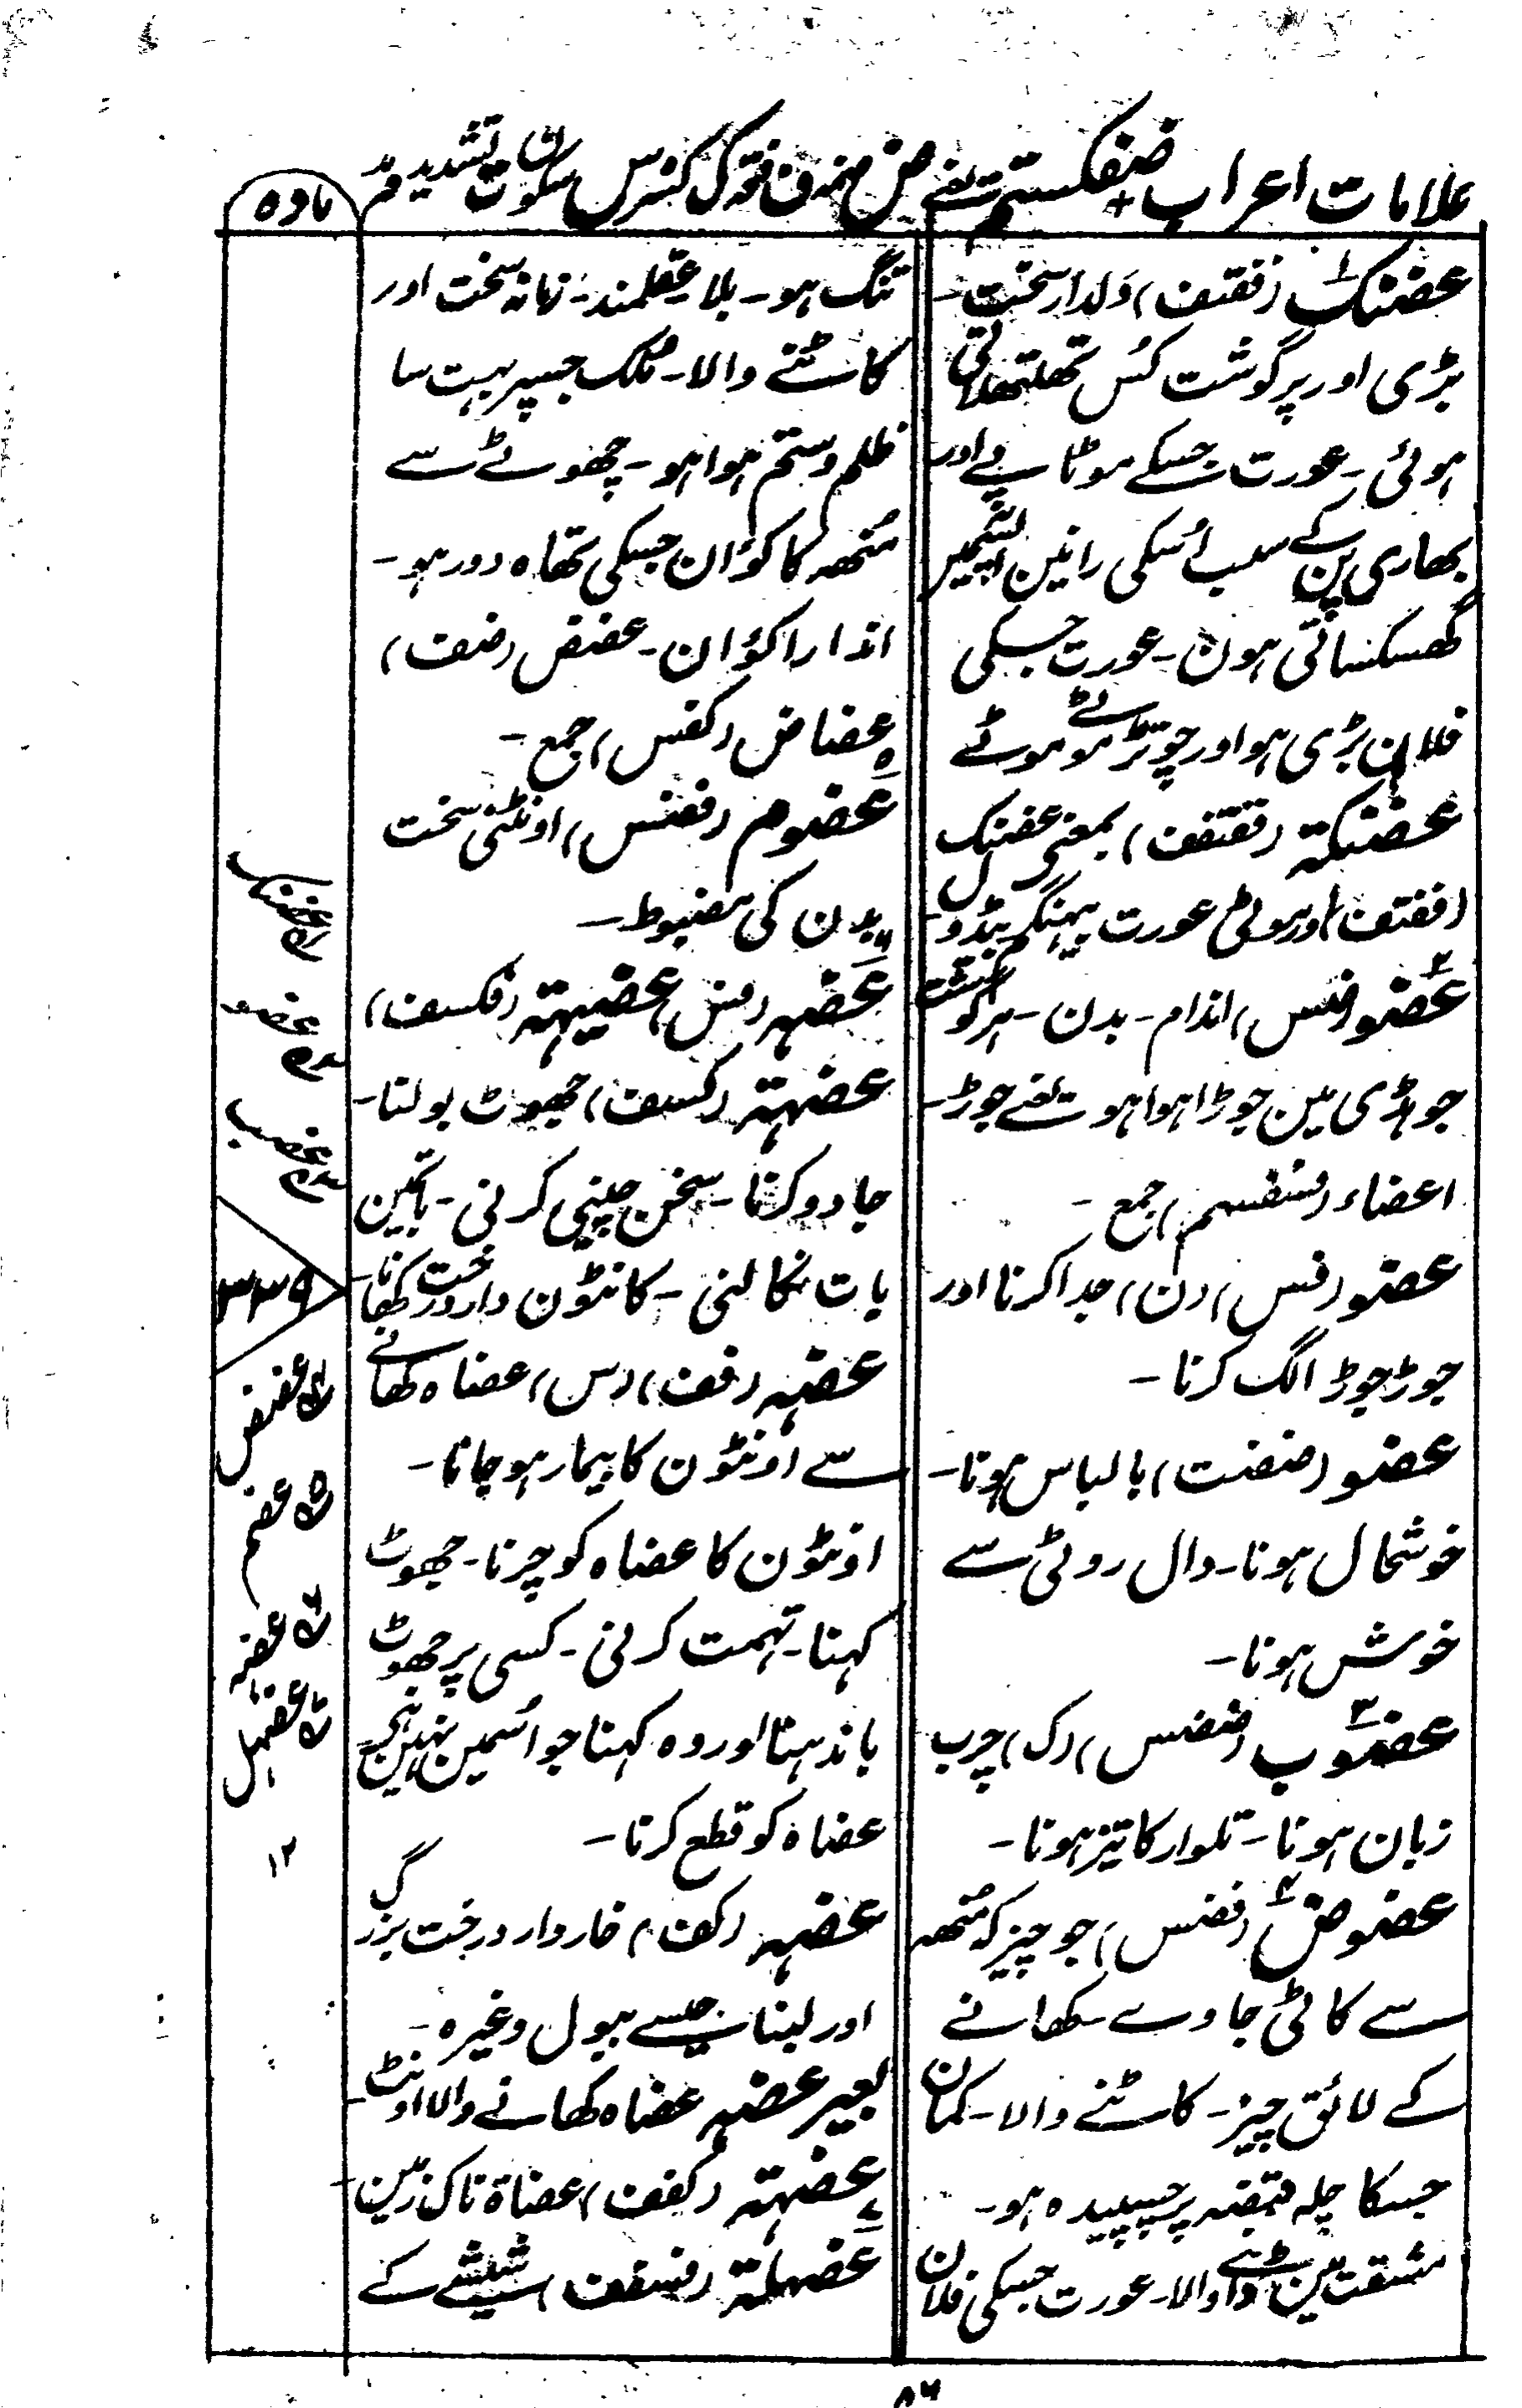 علامات اعراب ضفکستم یعنی ض ضمہ ف فتحہ ک کسر س سکون ت تشدید م مد
مادہ
عضنک (ففتف) دلدار سخت -
بڑی اور پرگوشت کس تھلتھلاتی
ہوئی - عورت جسکے موٹاپے اور
بھاری پن کے سبب اُسکی رانین آپسمیں
گھسکساتی ہون - عورت جسکی
فلان بڑی ہو اور چوتڑ موٹے موٹے
عضنکتہ (ففتفف) بمعنی عضنک
(ففتف) اور موٹی عورت
عضو (ضس) اندام - بدن - ہر گوشت
جو ہڈی مین جوڑا ہوا ہو یعنے جوڑ -
اعضاء (فسفسم) جمع -
عضو (فس) (ن) جدا کرنا اور
جوڑ جوڑ الگ کرنا -
عضو (ضضت) بالباس ہونا -
خوشحال ہونا - دال روٹی سے
خوش ہونا -
عضوب (ضضس) (ک) چرب
زبان ہونا - تلوار کا تیز ہونا -
عضوض (فضس) جو چیز کہ مُنھہ
سے کاٹی جاوے - کھانے
کے لائق چیز - کاٹنے والا - کمان
جسکا چلہ قبضہ پر چسپیدہ ہو -
مشقت مین ڈالنے والا - عورت جسکی فلان
تنگ ہو - بلا - عقلمند - زمانہ سخت اور
کاٹنے والا - مُلک جسپر بہت سا
ظلم و ستم ہوا ہو - چھوٹے سے
مُنھہ کا کوُان جسکی تھاہ دور ہو -
اندارا کوُان - عضض (ضف)
عضاض (کفس) جمع -
عضوم (فضس) اونٹنی سخت
بدن کی مضبوط -
عضہ (فس) عضیہتہ (فکسف)
عضہتہ (کسف) جھوٹ بولنا -
جادو کرنا - سخن چینی کرنی - باتین
بات نکالنی - کانٹون دار درخت کھانا -
عضہ (فف) (س) عضاہ کھانے
سے اونٹون کا بیمار ہو جانا -
اونٹون کا عضاہ کو چرنا - جھوٹ
کہنا - تہمت کرنی - کسی پر جھوٹ
باندہنا اور وہ کہنا جو اُسمین نہین ہے
عضاہ کو قطع کرنا -
عضہ (کف) خاردار درخت بزرگ
اور لمبا جیسے ببول وغیرہ -
بعیر عضہ عضاہ کھانے والا اونٹ -
عضہتہ (کفف) عضاۃ ناک زمین -
عضہلتہ (فسفف) شیشے کے
عضنک
عضو
عضب
۳۳۹
عضض
عضم
عضہ
عضہل
۱۲
۵۶